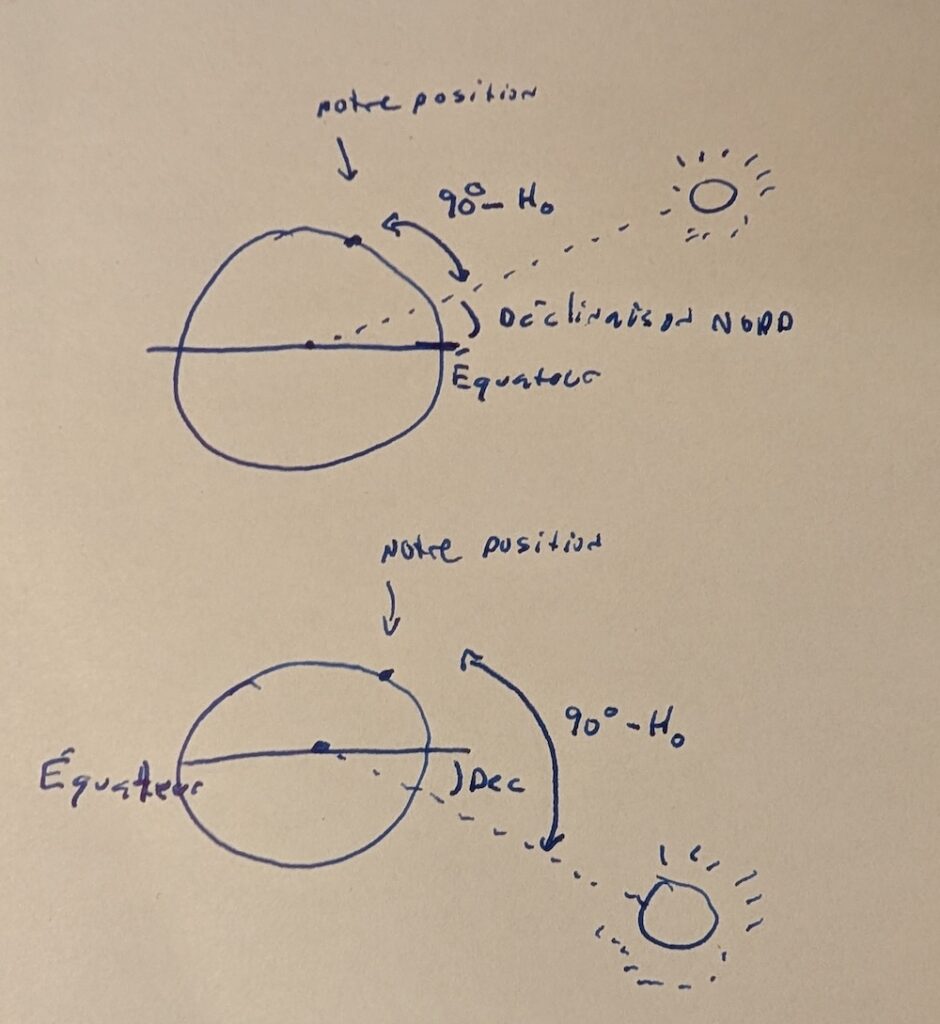 notre position
90° - Ho
Déclinaison NORD
Équateur
Notre position
90° - Ho
Équateur
Dec